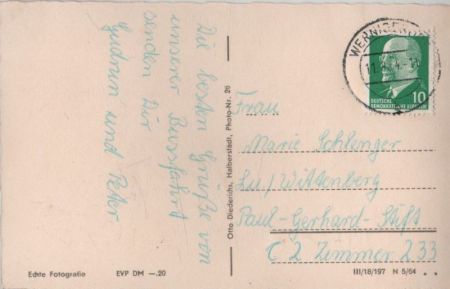 Die besten Grüße von
unserer Busfahrt
senden Dir
Gudrun und Peter
Echte Fotografie
EVP DM —.20
Otto Diederichs, Halberstadt, Photo-Nr. 26
WERNIGERODE
DEUTSCHE
DEMOKRATISCHE REPUBLIK
10
Frau
Marie Schlenger
Lu/Wittenberg
Paul-Gerhard-Stift
C 2 Zimmer 233
III/18/197 N 5/64